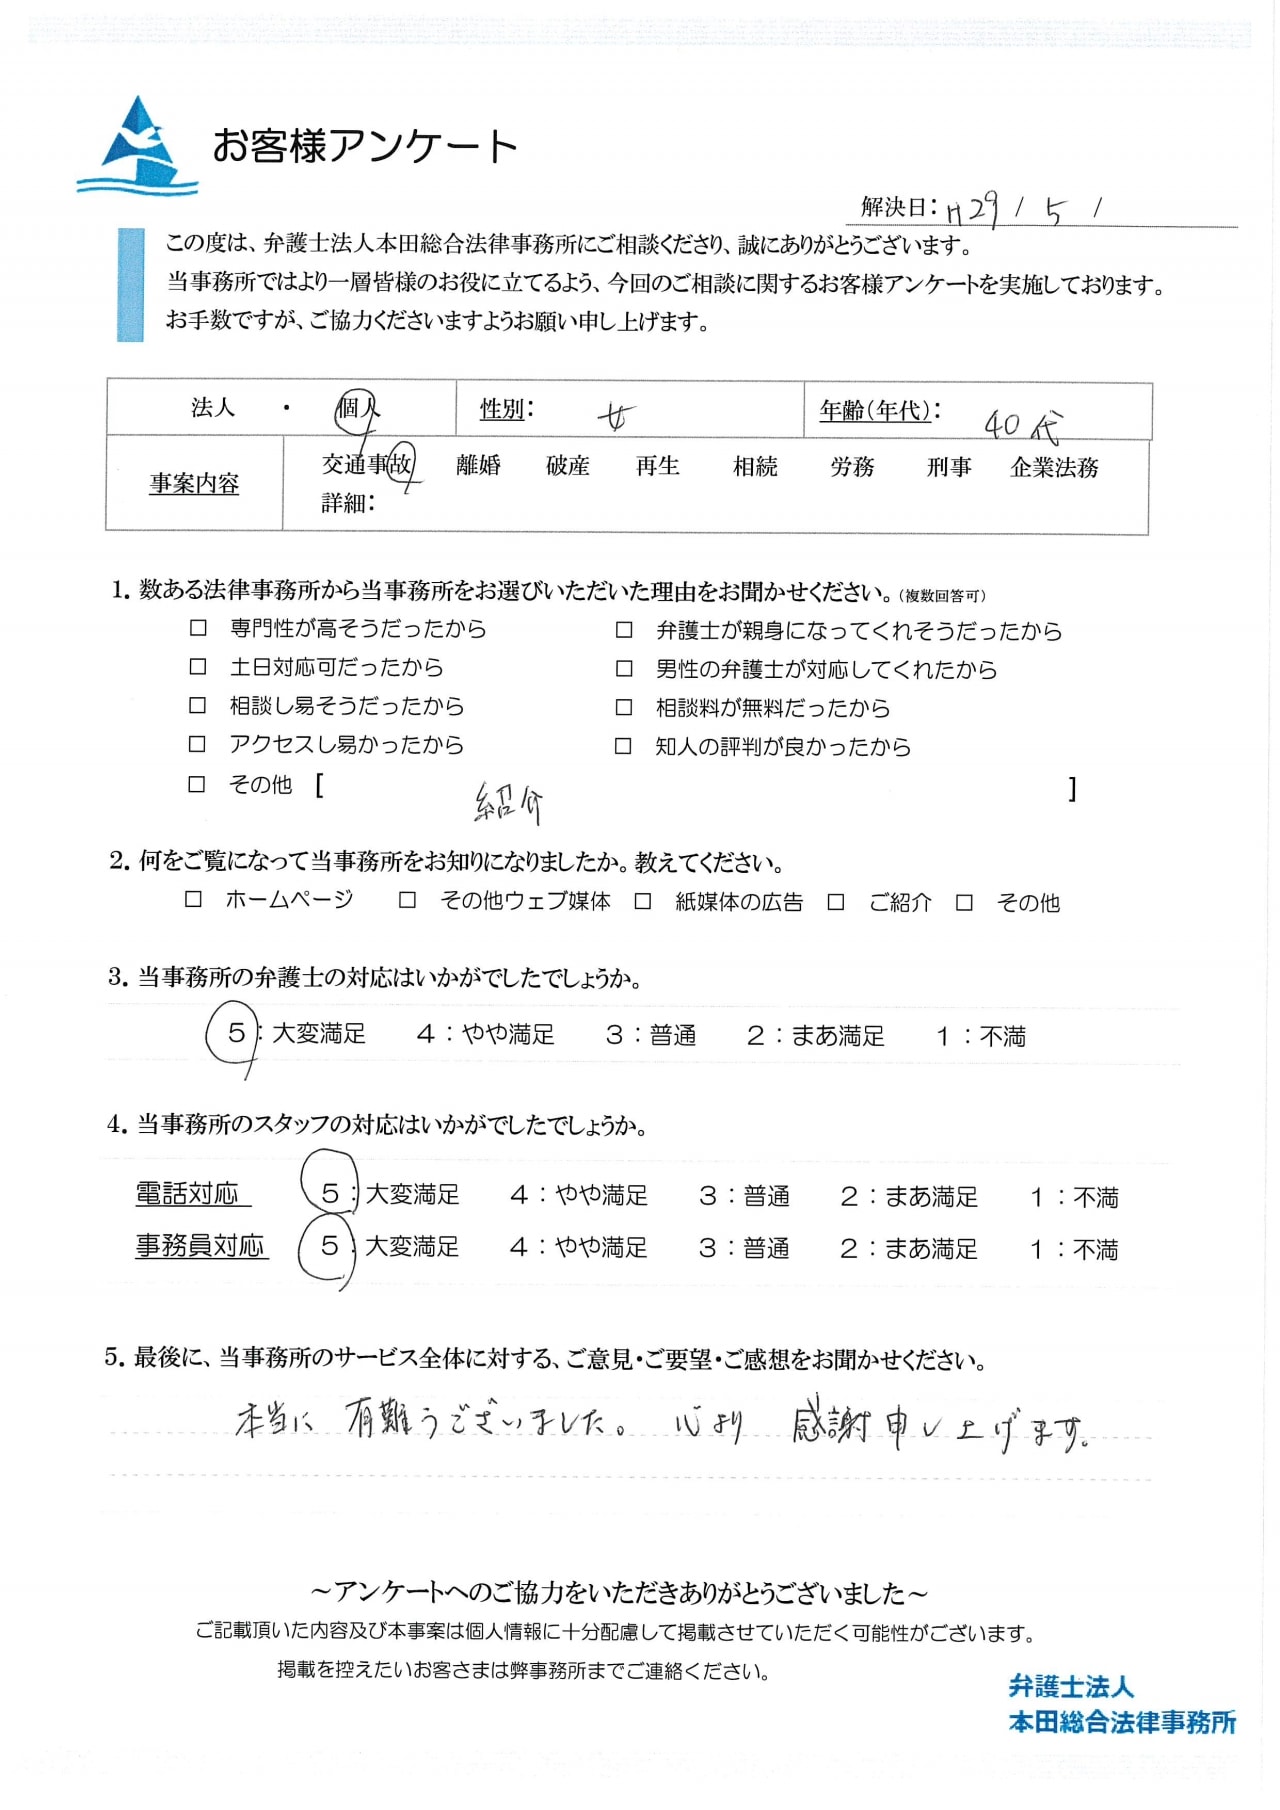 お客様アンケート
解決日: H29 / 5 /
この度は、弁護士法人本田総合法律事務所にご相談くださり、誠にありがとうございます。
当事務所ではより一層皆様のお役に立てるよう、今回のご相談に関するお客様アンケートを実施しております。
お手数ですが、ご協力くださいますようお願い申し上げます。
法人 ・ 個人 性別: 女 年齢(年代): 40代
事案内容 交通事故 離婚 破産 再生 相続 労務 刑事 企業法務
詳細:
1. 数ある法律事務所から当事務所をお選びいただいた理由をお聞かせください。(複数回答可)
□ 専門性が高そうだったから □ 弁護士が親身になってくれそうだったから
□ 土日対応可だったから □ 男性の弁護士が対応してくれたから
□ 相談し易そうだったから □ 相談料が無料だったから
□ アクセスし易かったから □ 知人の評判が良かったから
□ その他 [ 紹介 ]
2. 何をご覧になって当事務所をお知りになりましたか。教えてください。
□ ホームページ □ その他ウェブ媒体 □ 紙媒体の広告 □ ご紹介 □ その他
3. 当事務所の弁護士の対応はいかがでしたでしょうか。
5:大変満足 4:やや満足 3:普通 2:まあ満足 1:不満
4. 当事務所のスタッフの対応はいかがでしたでしょうか。
電話対応 5:大変満足 4:やや満足 3:普通 2:まあ満足 1:不満
事務員対応 5:大変満足 4:やや満足 3:普通 2:まあ満足 1:不満
5. 最後に、当事務所のサービス全体に対する、ご意見・ご要望・ご感想をお聞かせください。
本当に 有難うございました。 心より 感謝申し上げます。
～アンケートへのご協力をいただきありがとうございました～
ご記載頂いた内容及び本事案は個人情報に十分配慮して掲載させていただく可能性がございます。
掲載を控えたいお客さまは弊事務所までご連絡ください。
弁護士法人
本田総合法律事務所